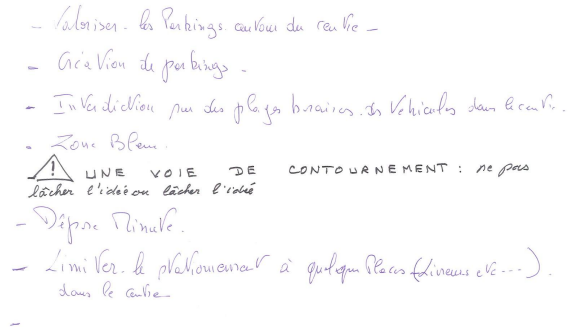 - Valoriser les Parkings autour du centre -
- Création de parkings.
- Interdiction sur des plages horaires des Vehicules dans le centre.
- Zone Bleue.
! UNE VOIE DE CONTOURNEMENT : ne pas
lâcher l'idée ou lâcher l'idée
- Dépose Minute.
- Limiter le stationnement à quelques Places (Livreurs etc ...).
dans le centre
-